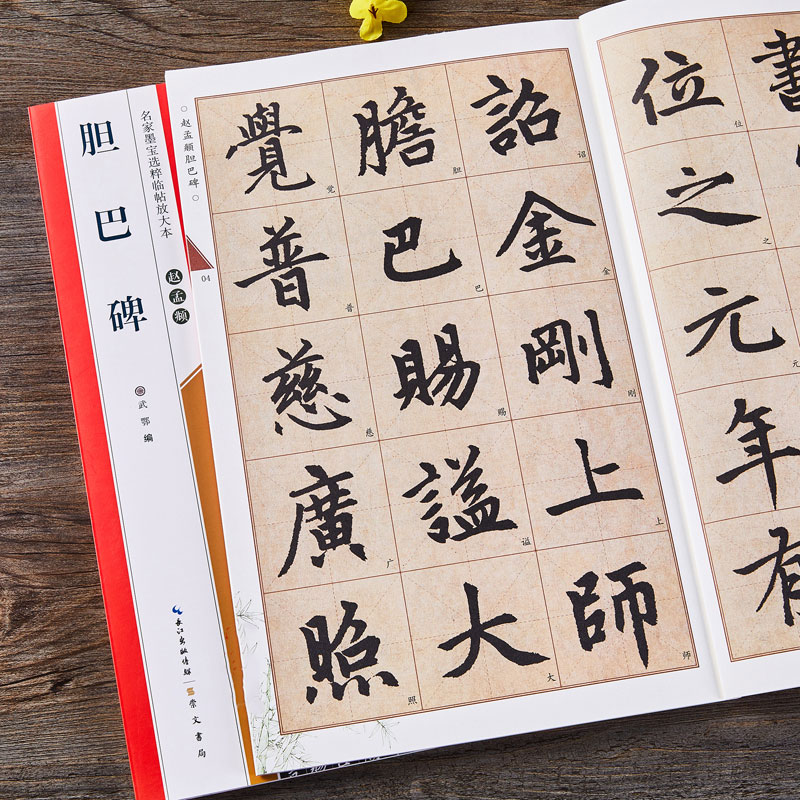 胆巴碑
名家墨宝选粹临帖放大本
赵孟頫
武鄂 编
长江出版传媒
崇文书局
○ 赵孟頫胆巴碑 ○
04
位之元年有
位 之 元
書
詔金剛上師
诏 金 刚 上 师
膽巴賜謚大
胆 巴 赐 谥 大
覺普慈廣照
觉 普 慈 广 照